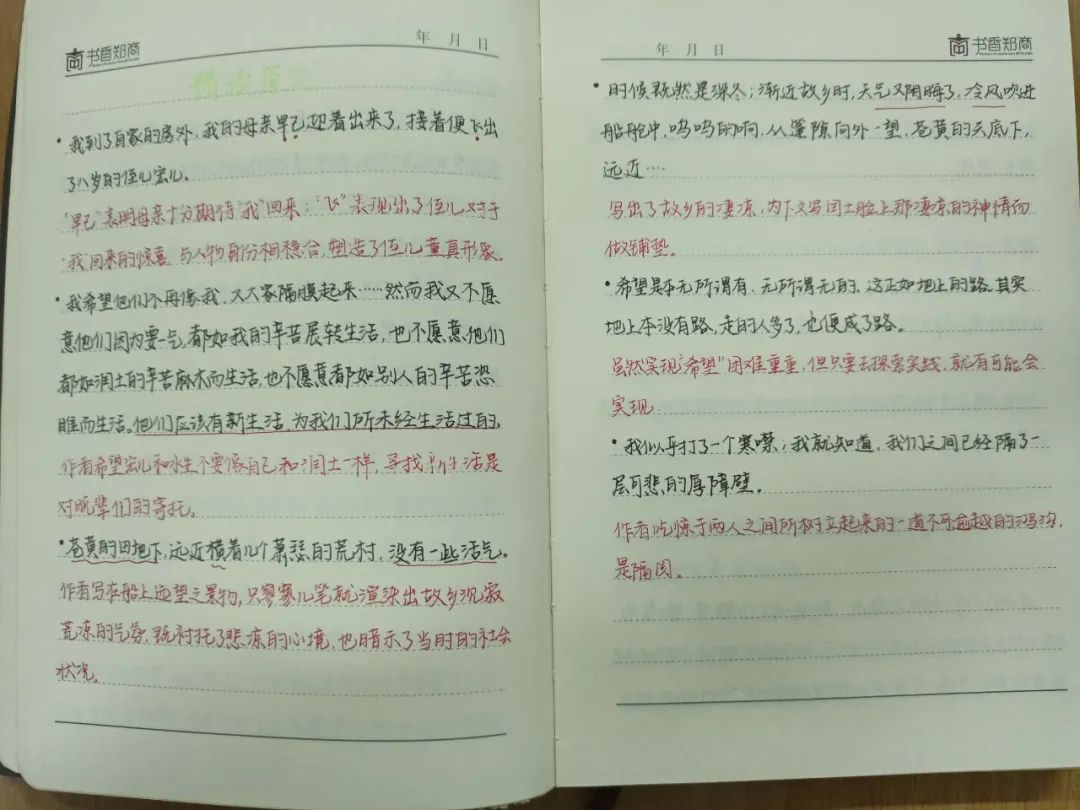 书香郑商
年 月 日
摘读原文
·我到了自家的房外，我的母亲早已迎着出来了，接着便飞出
了八岁的侄儿宏儿。
"早已"表明母亲十分期待"我"回来；"飞"表现出了侄儿对于
"我"回来的惊喜，与人物身份相稳合，塑造了侄儿童真形象。
·我希望他们不再像我，又大家隔膜起来……然而我又不愿
意他们因为要一气，都如我的辛苦展转生活，也不愿意他们
都如闰土的辛苦麻木而生活，也不愿意都如别人的辛苦恣
睢而生活。他们应该有新生活，为我们所未经生活过的。
作者希望宏儿和水生不要像自己和闰土一样，寻找新生活是
对晚辈们的寄托。
·苍黄的田地下，远近横着几个萧瑟的荒村，没有一些活气。
作者写在船上远望之景物，只寥寥几笔就渲染出故乡沉寂
荒凉的气氛，既衬托了悲凉的心境，也暗示了当时的社会
状况。
年 月 日
书香郑商
·时候既然是深冬；渐近故乡时，天气又阴晦了，冷风吹进
船舱中，呜呜的响，从篷隙向外一望，苍黄的天底下，
远近…
写出了故乡的凄凉，为下文写闰土脸上那凄凉的神情而
做铺垫。
·希望是本无所谓有，无所谓无的，这正如地上的路。其实
地上本没有路，走的人多了，也便成了路。
虽然实现"希望"困难重重，但只要去探索实践，就有可能会
实现
·我似乎打了一个寒噤；我就知道，我们之间已经隔了一
层可悲的厚障壁。
作者吃惊于两人之间所树立起来的一道不可逾越的鸿沟，
是隔阂。